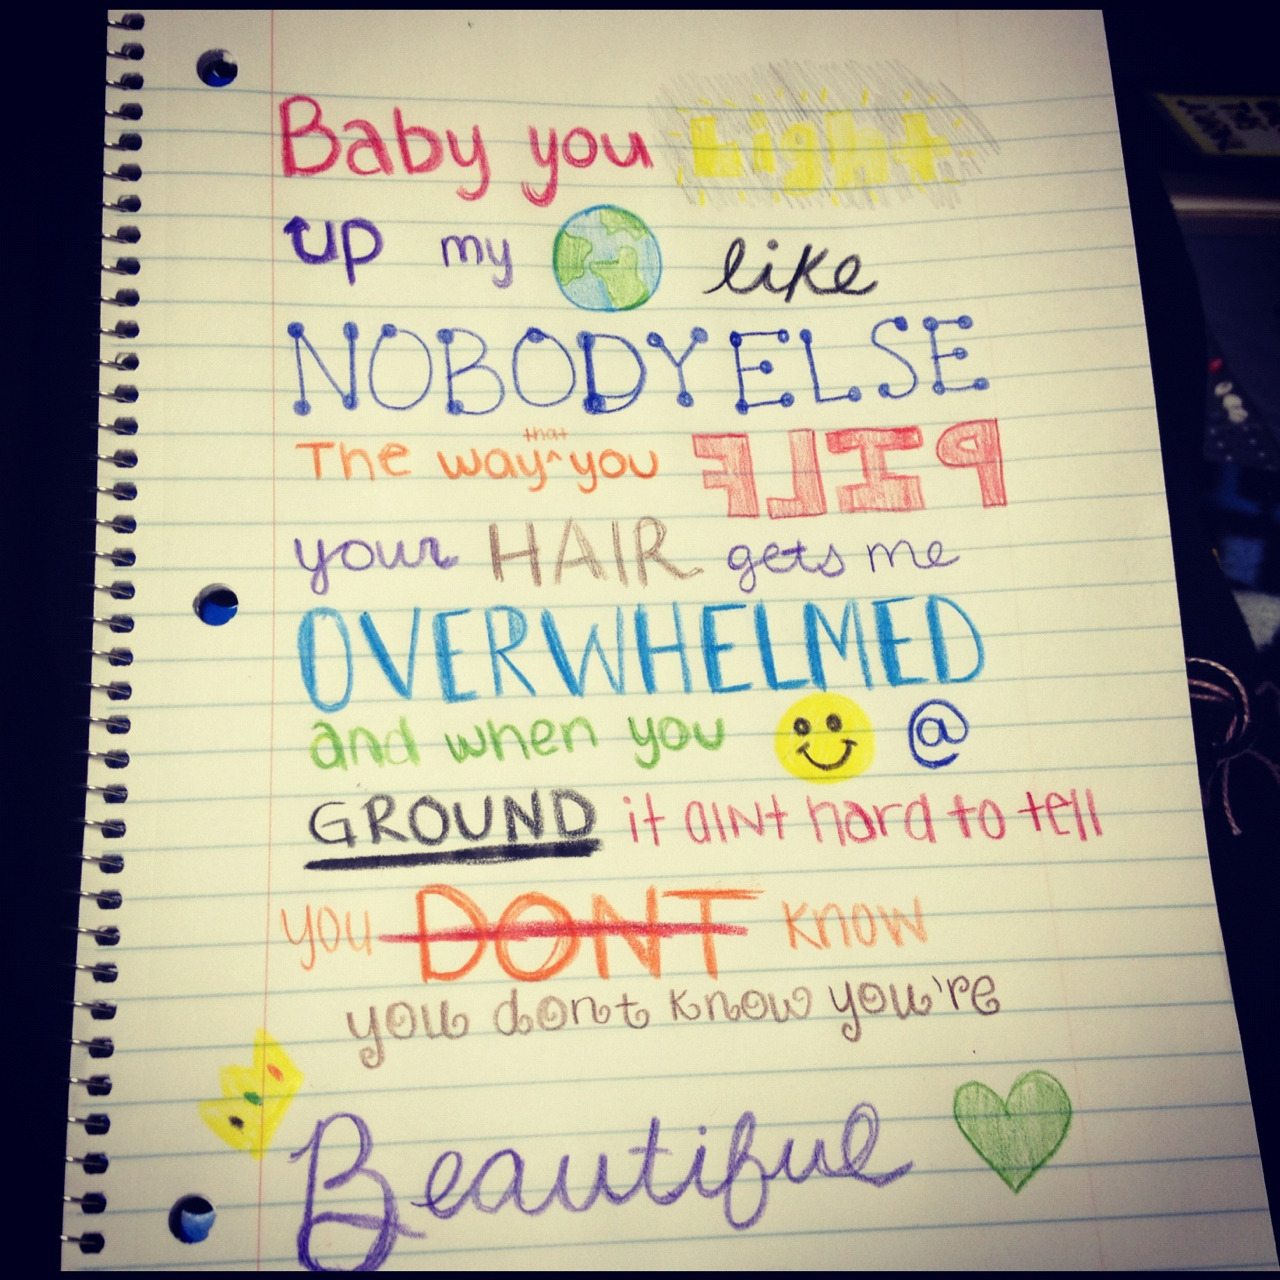 Baby you Light
up my like
NOBODY ELSE
The way that you FLIP
your HAIR gets me
OVERWHELMED
and when you @
GROUND it aint hard to tell
you DONT know
you dont know you're
Beautiful